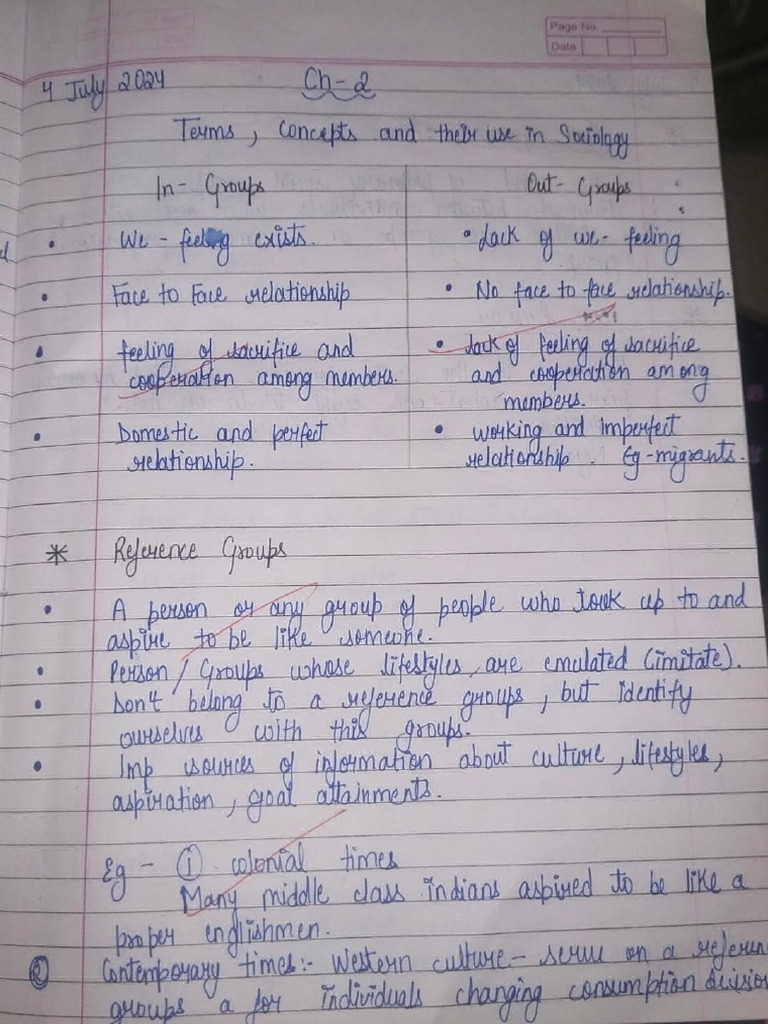 Page No.
Date
4 July 2024
Ch-2
Terms, Concepts and their use in Sociology
In-Groups
Out-Groups
• We-feeling exists.
• Lack of we-feeling
• Face to Face relationship
• No face to face relationship.
• feeling of sacrifice and
cooperation among members.
• Lack of feeling of sacrifice
and cooperation among
members.
• Domestic and perfect
relationship.
• working and imperfect
relationship. Eg-migrants.
* Reference Groups
• A person or any group of people who took up to and
aspire to be like someone.
• Person / Groups whose lifestyles, are emulated (imitate).
• Don't belong to a reference groups, but identify
ourselves with this groups.
• Imp sources of information about culture, lifestyles,
aspiration, goal attainments.
Eg - ① colonial times
Many middle class Indians aspired to be like a
proper englishmen.
② Contemporary times:- Western culture - serve on a referen
groups a for individuals changing consumption decision